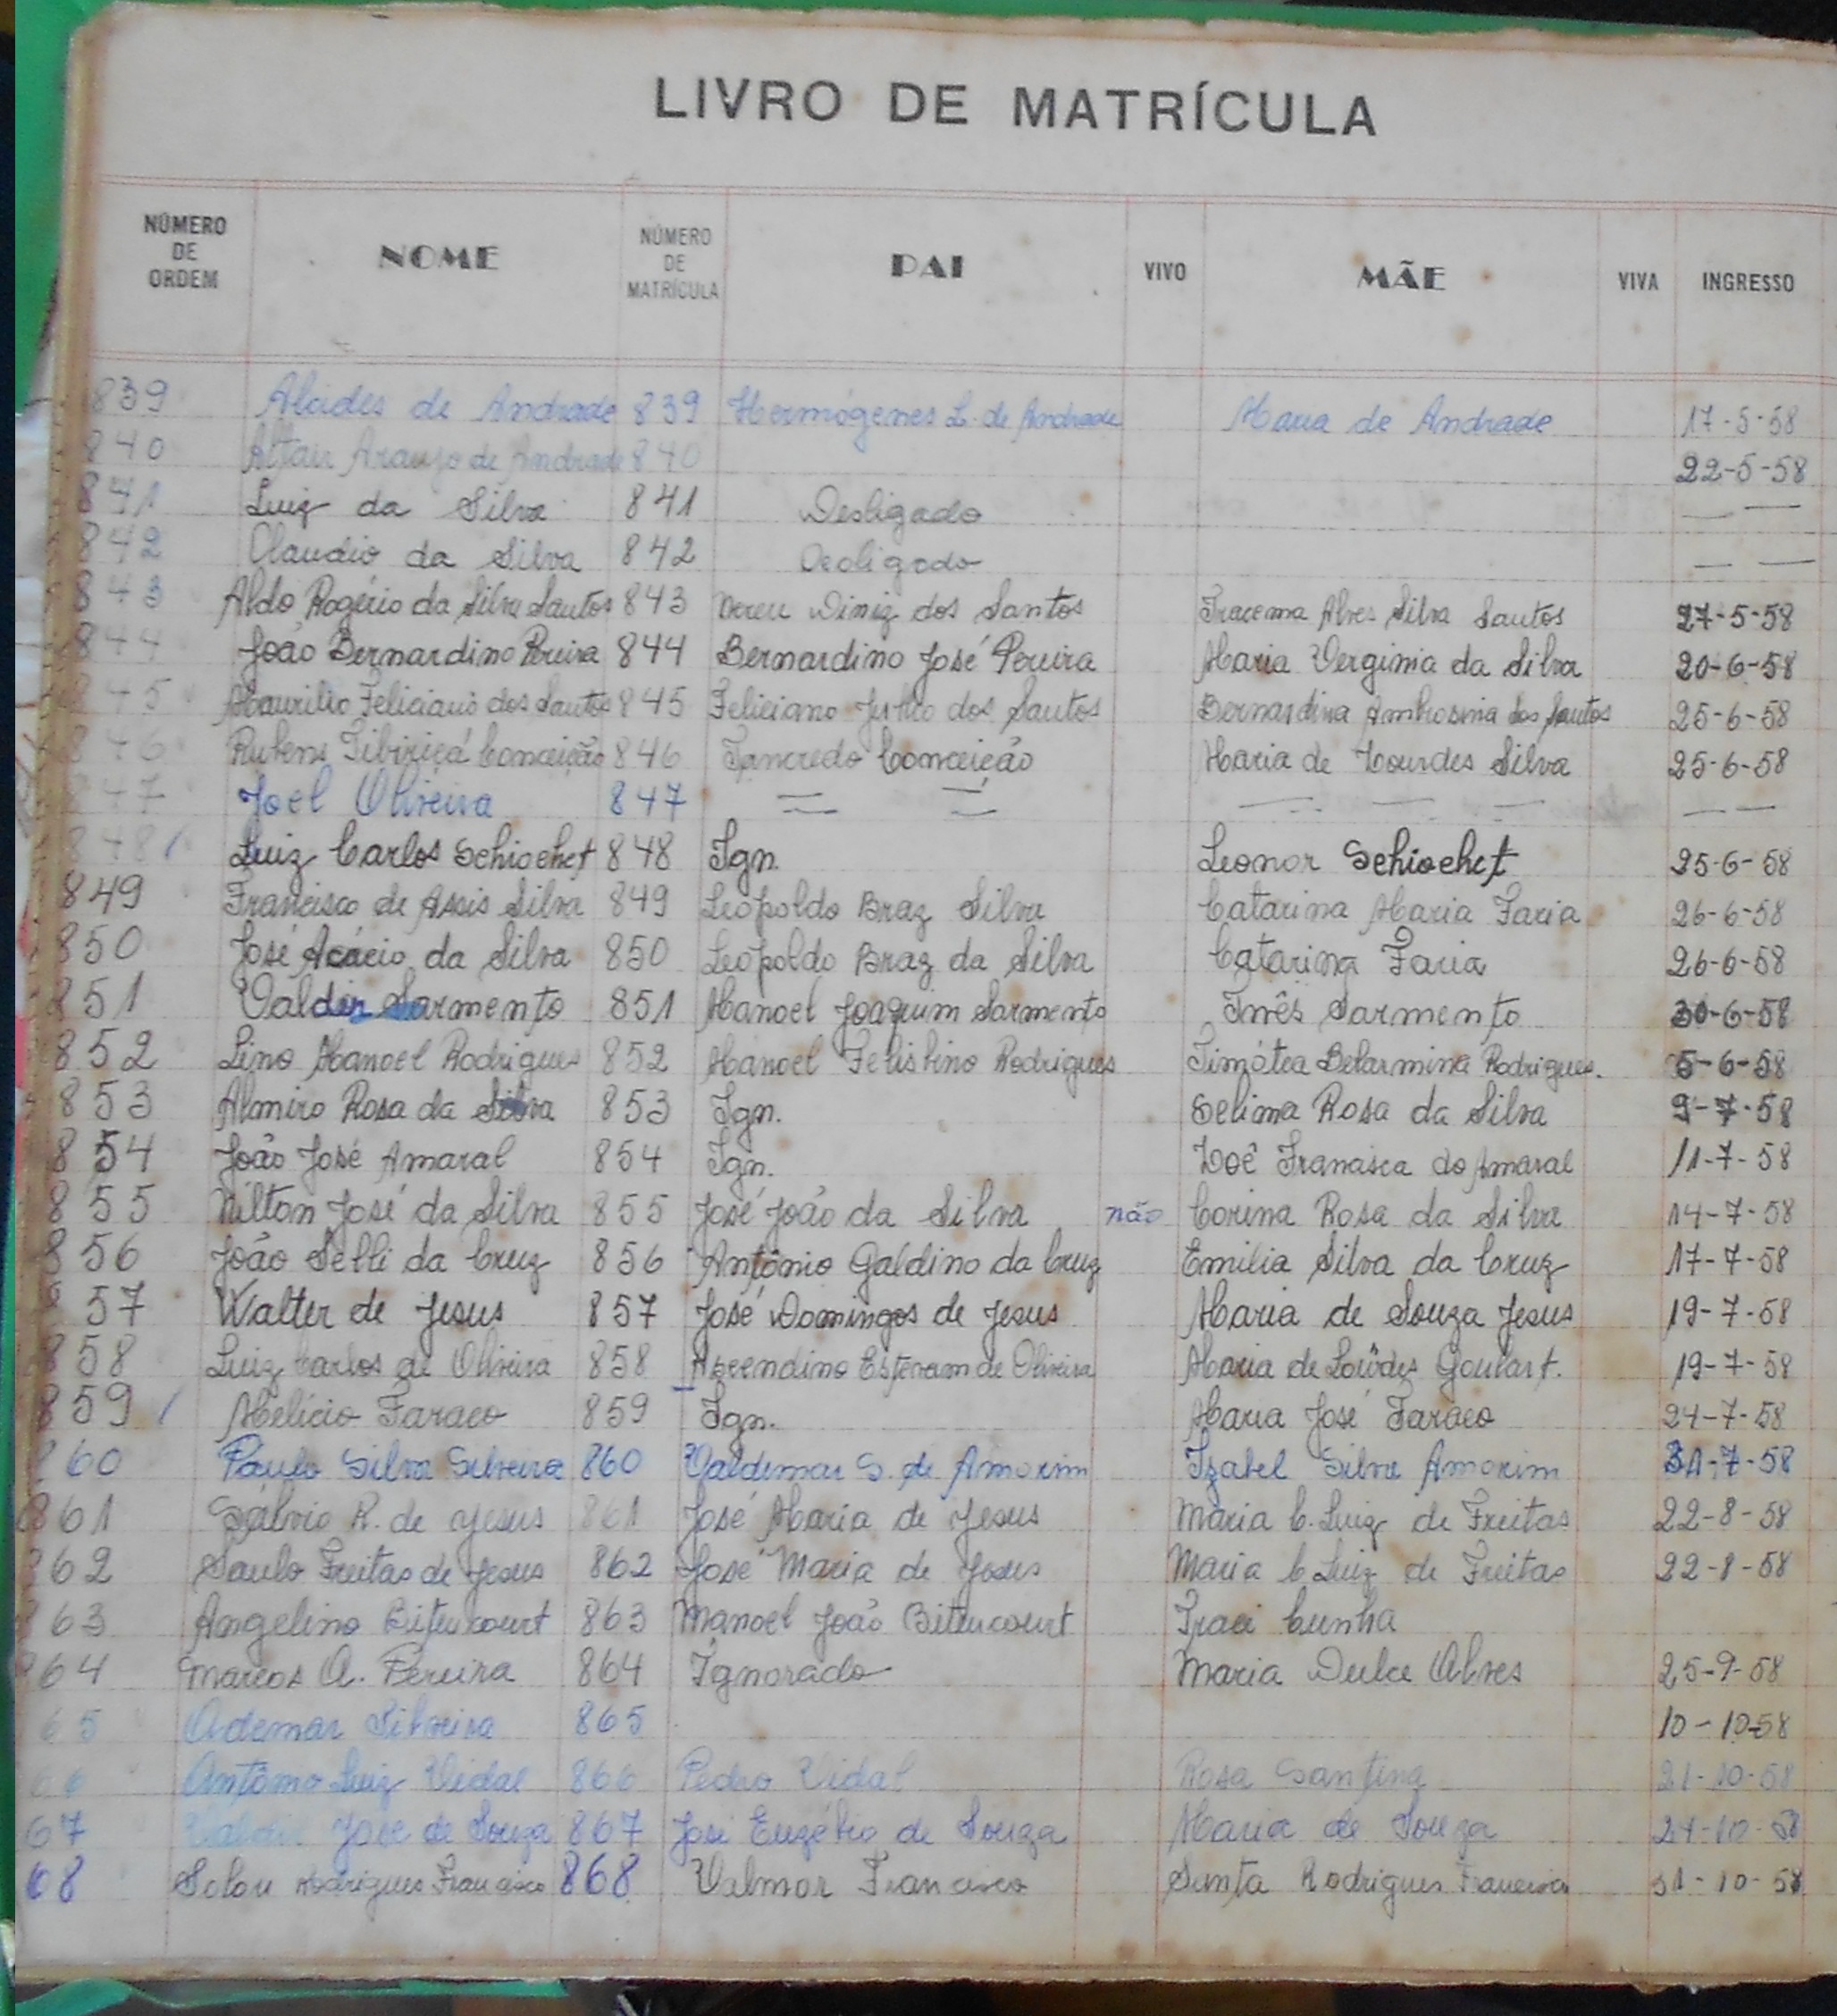 LIVRO DE MATRÍCULA
NÚMERO DE ORDEM NOME NÚMERO DE MATRÍCULA PAI VIVO MÃE VIVA INGRESSO
839 Alcides de Andrade 839 Hermógenes L. de Andrade Maria de Andrade 17-5-58
840 Altair Araujo de Andrade 840 22-5-58
841 Luiz da Silva 841 Desligado — —
842 Claudio da Silva 842 Desligado — —
843 Aldo Rogério da Silva Santos 843 Nereu Diniz dos Santos Iracema Alves Silva Santos 27-5-58
844 João Bernardino Pereira 844 Bernardino José Pereira Maria Verginia da Silva 20-6-58
845 Maurilio Feliciano dos Santos 845 Feliciano Julio dos Santos Bernardina Ambrosina dos Santos 25-6-58
846 Rubens Tibiriçá Conceição 846 Tancredo Conceição Maria de Lourdes Silva 25-6-58
847 Joel Oliveira 847 — — — — — — —
848 Luiz Carlos Schiochet 848 Ign. Leonor Schiochet 25-6-58
849 Francisco de Assis Silva 849 Leopoldo Braz Silva Catarina Maria Faria 26-6-58
850 José Acácio da Silva 850 Leopoldo Braz da Silva Catarina Faria 26-6-58
851 Valdir Sarmento 851 Manoel Joaquim Sarmento Inês Sarmento 30-6-58
852 Lino Manoel Rodrigues 852 Manoel Felisbino Rodrigues Timótea Belarmina Rodrigues. 5-6-58
853 Almiro Rosa da Silva 853 Ign. Selima Rosa da Silva 9-7-58
854 João José Amaral 854 Ign. Zoê Francisca do Amaral 11-7-58
855 Nilton José da Silva 855 José João da Silva não Corina Rosa da Silva 14-7-58
856 João Selli da Cruz 856 Antônio Galdino da Cruz Emilia Silva da Cruz 17-7-58
857 Walter de Jesus 857 José Domingos de Jesus Maria de Souza Jesus 19-7-58
858 Luiz Carlos de Oliveira 858 Ascendino Estevam de Oliveira Maria de Lourdes Goulart. 19-7-58
859 Melicio Faraco 859 Ign. Maria José Faraco 24-7-58
860 Paulo Silva Silveira 860 Valdemar S. de Amorim Izabel Silva Amorim 31-7-58
861 Sálvio R. de Jesus 861 José Maria de Jesus Maria C. Luiz de Freitas 22-8-58
862 Saulo Freitas de Jesus 862 José Maria de Jesus Maria C Luiz de Freitas 22-8-58
863 Angelino Bitencourt 863 Manoel João Bitencourt Iraci Cunha
864 Marcos A. Pereira 864 Ignorado Maria Dulce Alves 25-9-58
65 Ademar Silveira 865 10-10-58
66 Antônio Luiz Vidal 866 Pedro Vidal Rosa Santina 21-10-58
67 Valdir José de Souza 867 José Euzébio de Souza Maria de Souza 24-10-58
68 Solon Rodrigues Francisco 868 Valmor Francisco Santa Rodrigues Francisco 31-10-58